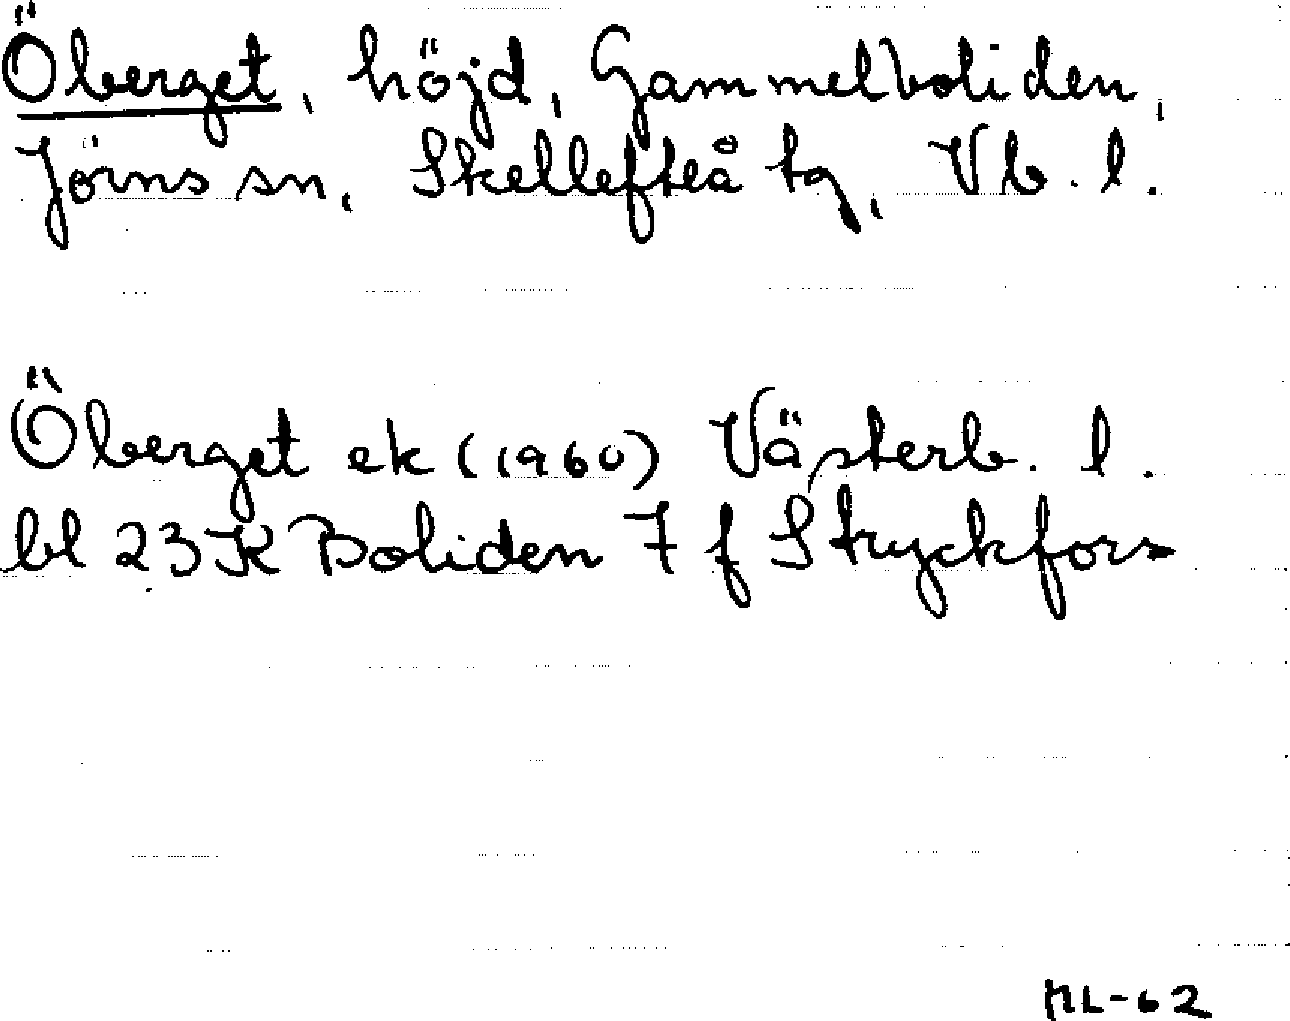 Öberget, höjd, Gammelboliden,
Jörns sn, Skellefteå tg, Vb. l.
Öberget ek (1960) Västerb. l.
bl 23K Boliden 7 f Stryckfors
ML-62